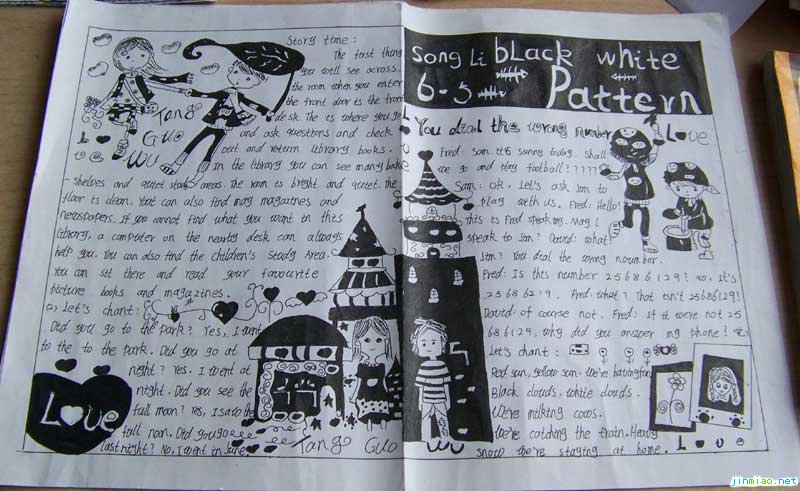 Story time:
The first thing
you will see across
the room when you enter
the front door is the front
desk. The is where you go
and ask questions and check
out and return library books.
In the library you can see many book
-shelves and quiet study areas. The room is bright and quiet. The
floor is clean. You can also find may magazines and
newspapers. If you cannot find what you want in this
library, a computer on the nearby desk can always
help you. You can also find the children's Study Area.
You can sit there and read your favourite
picture books and magazines.
Let's chant:
Did you go to the park? Yes, I went
to the to the park. Did you go at
night? Yes. I went at
night. Did you see the
full moon? Yes, I saw the
full noon. Did you go
last night? No, I went in June
Tang
Guo
Wu
Love
Love
Tang Guo Wu
Song Li black white
6-5 Pattern
You dial the wrong number
Love
Fred: Sam. It's sunny today. Shall
we go and play football?????
Sam: ok. Let's ask Jim to
play with us. Fred: Hello!
This is Fred speaking. May I
speak to Jim? David: what!
Jim? You dial the wrong noumber.
Fred: Is this number 25686129? no. It's
2568 6219. Fred: what? That isn't 25686129!
David: of course not. Fred: If it were not 25
686129, why did you answer my phone?
Let's chant:
Red sun, yellow sun. We're having fun
Black clouds, white clouds.
We're milking cows.
We're catching the train. Heavy
snow we're staying at home.
Love
jinmiao.net